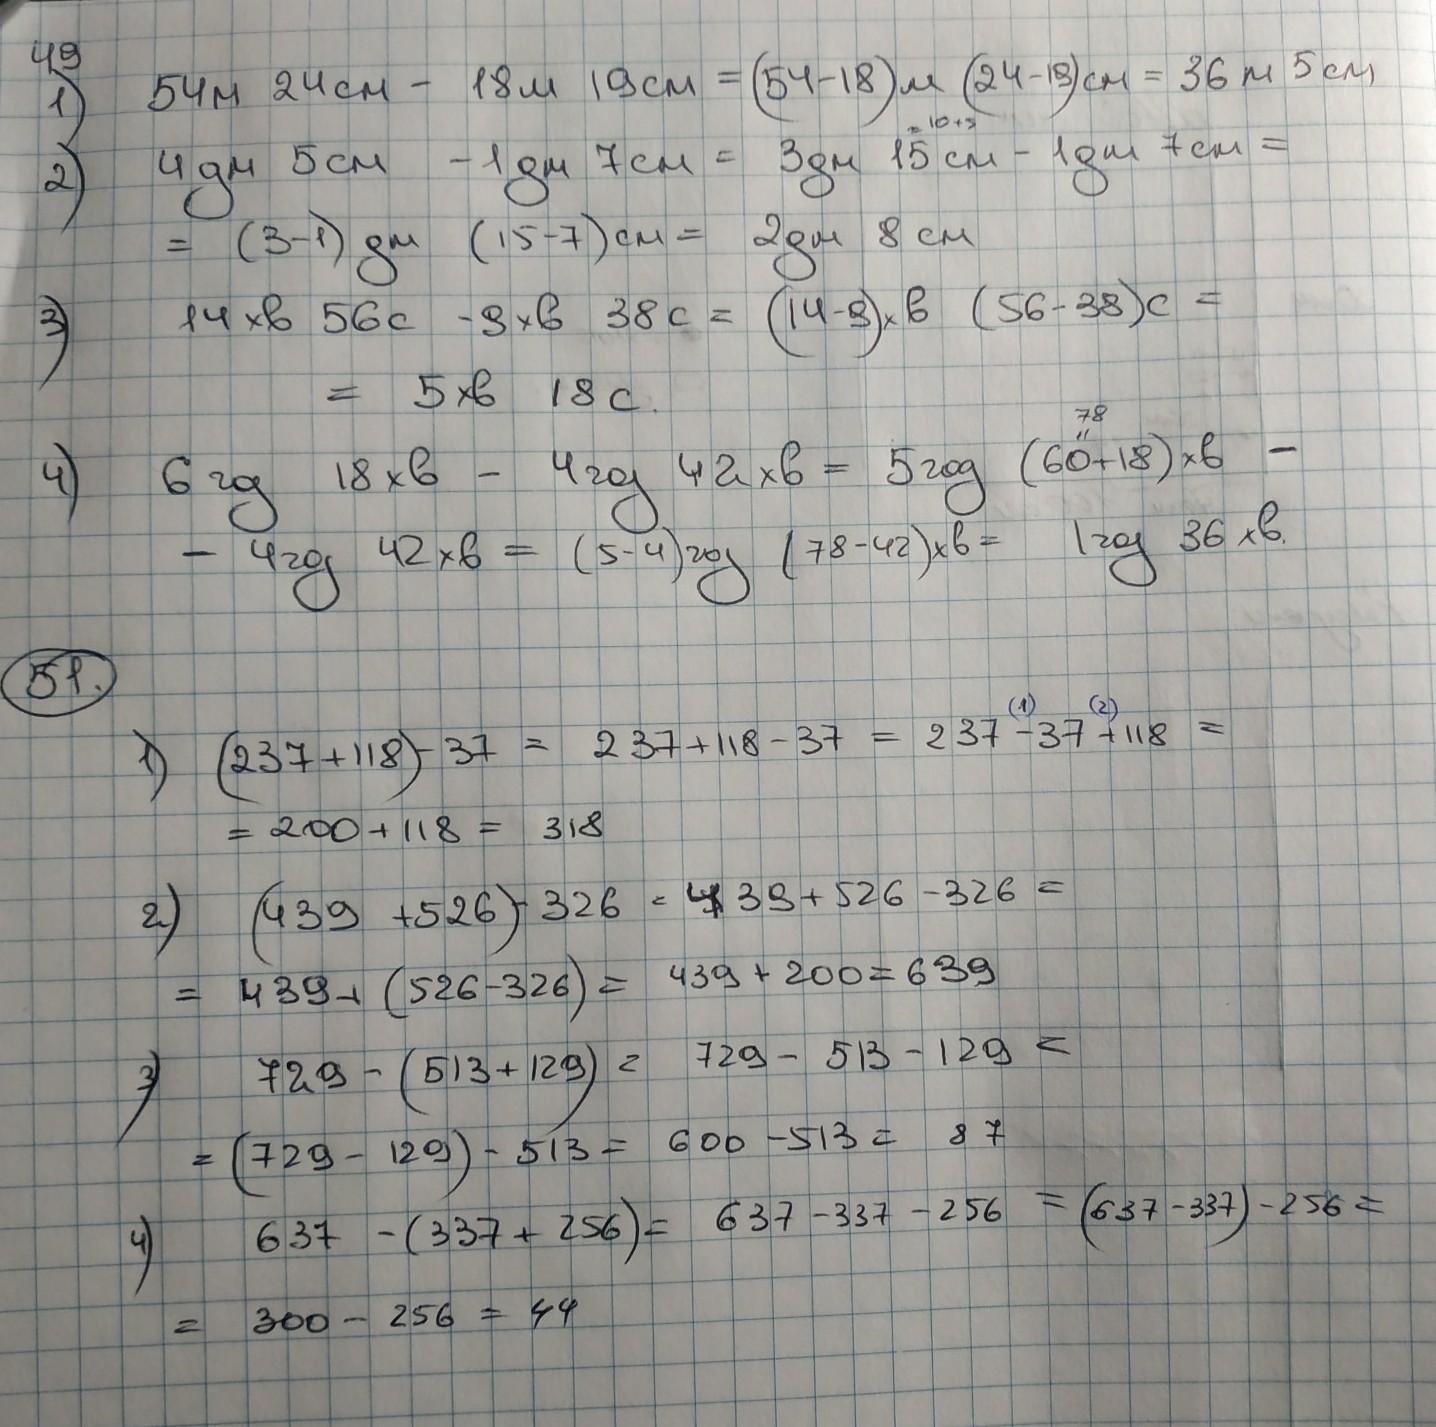 49
1) 54м 24см - 18м 19см = (54-18)м (24-19)см = 36м 5см
= 10+5
2) 4дм 5см - 1дм 7см = 3дм 15см - 1дм 7см =
= (3-1) дм (15-7)см = 2дм 8см
3) 14хв 56с - 9хв 38с = (14-9)хв (56-38)с =
= 5хв 18с.
78
"
4) 6год 18хв - 4год 42хв = 5год (60+18)хв -
- 4год 42хв = (5-4)год (78-42)хв = 1год 36хв.
51.
(1) (2)
1) (237+118)-37 = 237+118-37 = 237-37+118 =
= 200+118 = 318
2) (439+526)-326 = 439+526-326 =
= 439+(526-326) = 439+200=639
3) 729-(513+129) = 729-513-129 =
= (729-129)-513 = 600-513 = 87
4) 637-(337+256) = 637-337-256 = (637-337)-256 =
= 300-256 = 44